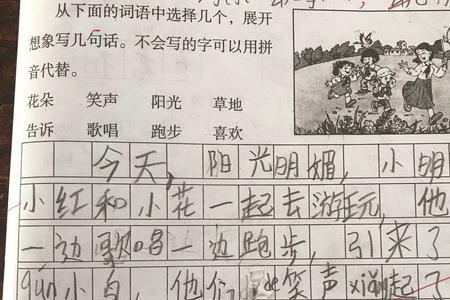 从下面的词语中选择几个，展开
想象写几句话。不会写的字可以用拼
音代替。
花朵 笑声 阳光 草地
告诉 歌唱 跑步 喜欢
今天，阳光明媚，小明
小红和小花一起去游玩，他
一边歌唱一边跑步，引来了
小鸟，他们 笑声 起了